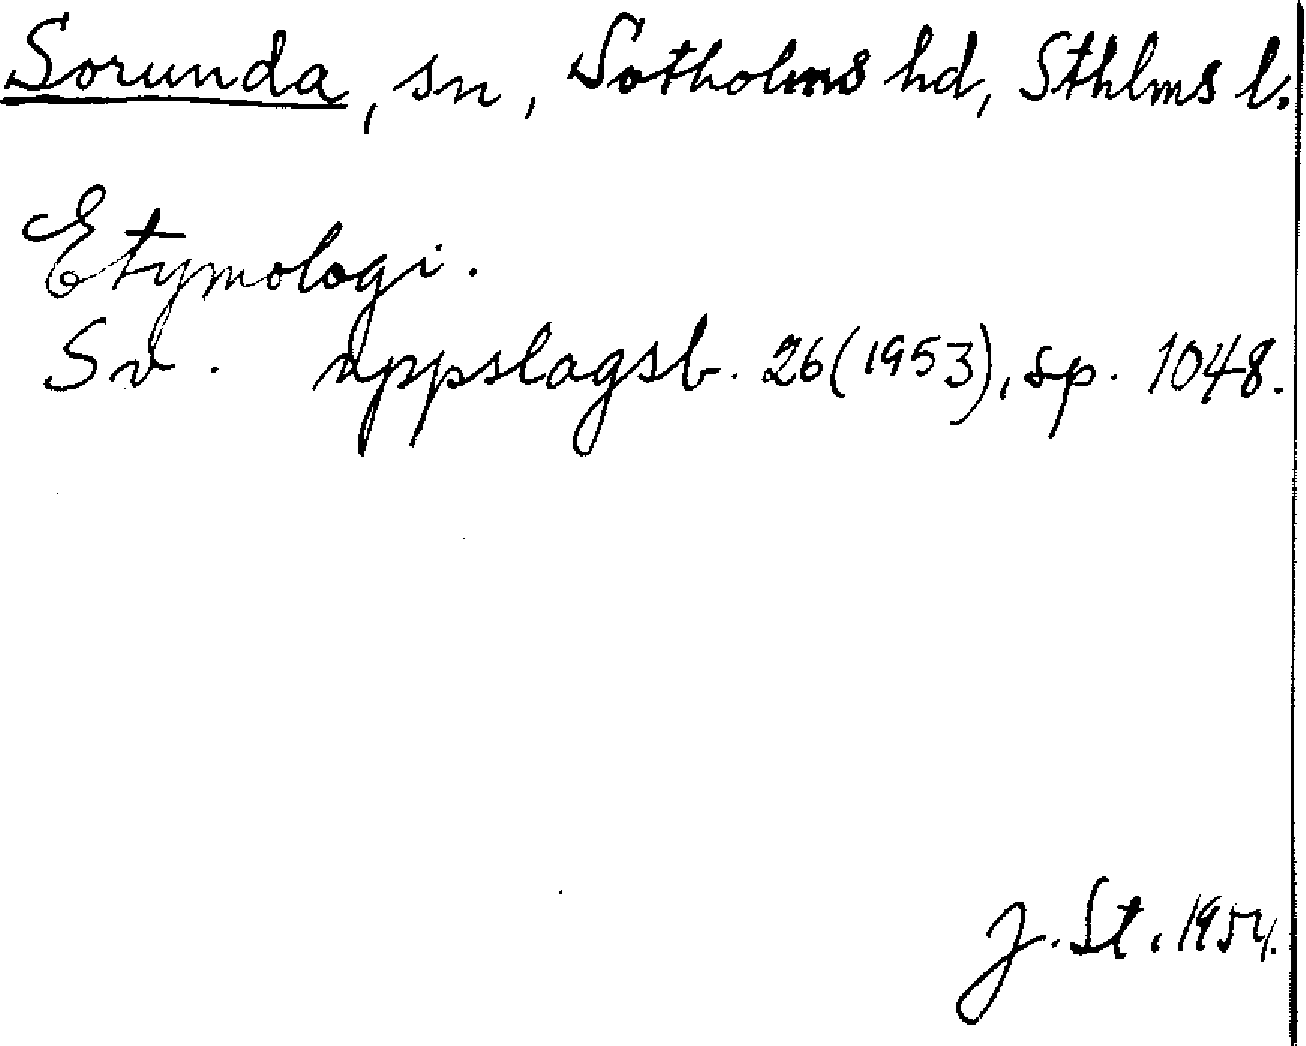 Sorunda, sn, Sotholms hd, Sthlms l.
Etymologi.
Sv. uppslagsb. 26 (1953), sp. 1048.
J. St. 1954.